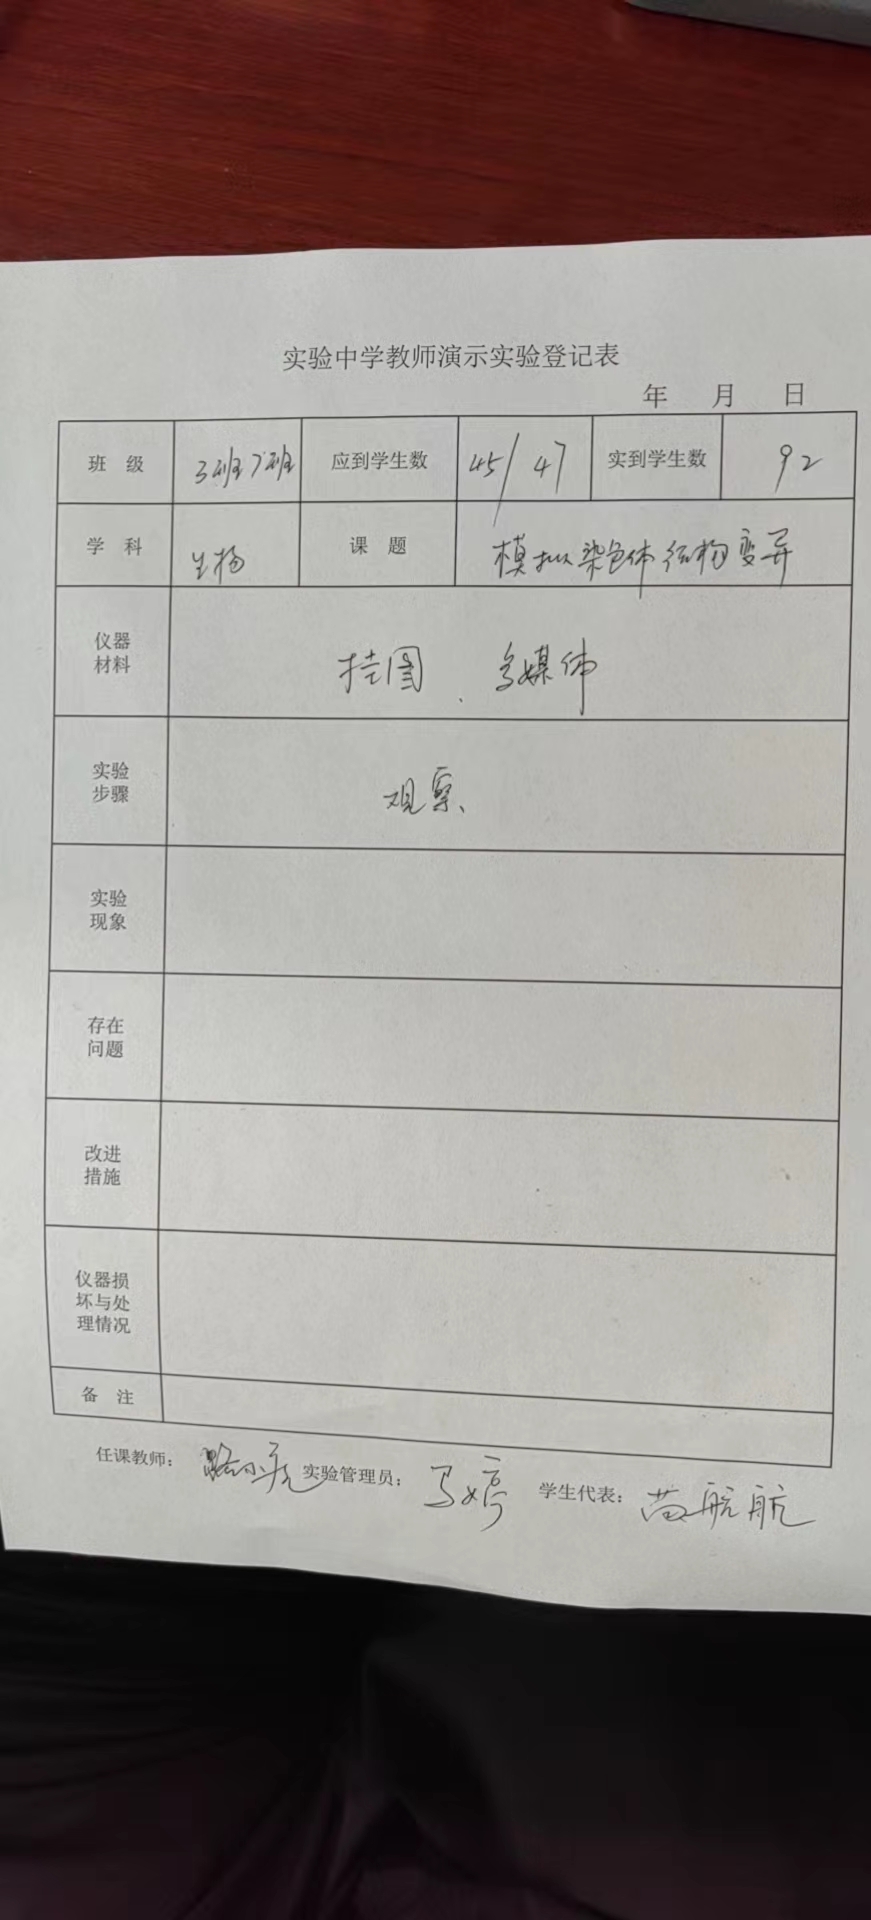 实验中学教师演示实验登记表
年 月 日
班 级 3班7班 应到学生数 45/47 实到学生数 92
学 科 生物 课 题 模拟染色体结构变异
仪器
材料
挂图、多媒体
实验
步骤
观察、
实验
现象
存在
问题
改进
措施
仪器损
坏与处
理情况
备 注
任课教师: 实验管理员: 马婷 学生代表: 苗航航